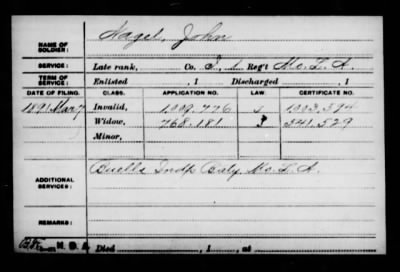 Nagel, John
NAME OF SOLDIER:
SERVICE: Late rank, Co. I, 1 Reg't Mo. L. A.
TERM OF SERVICE: Enlisted , 1 Discharged , 1
DATE OF FILING. CLASS. APPLICATION NO. LAW CERTIFICATE NO.
1891 Mar 7 Invalid, 1,009.776 1,003,594
Widow, 768.181 3 541,529
Minor,
ADDITIONAL SERVICES: Buells Indp Baty, Mo. L. A.
REMARKS:
Died , 1 , at